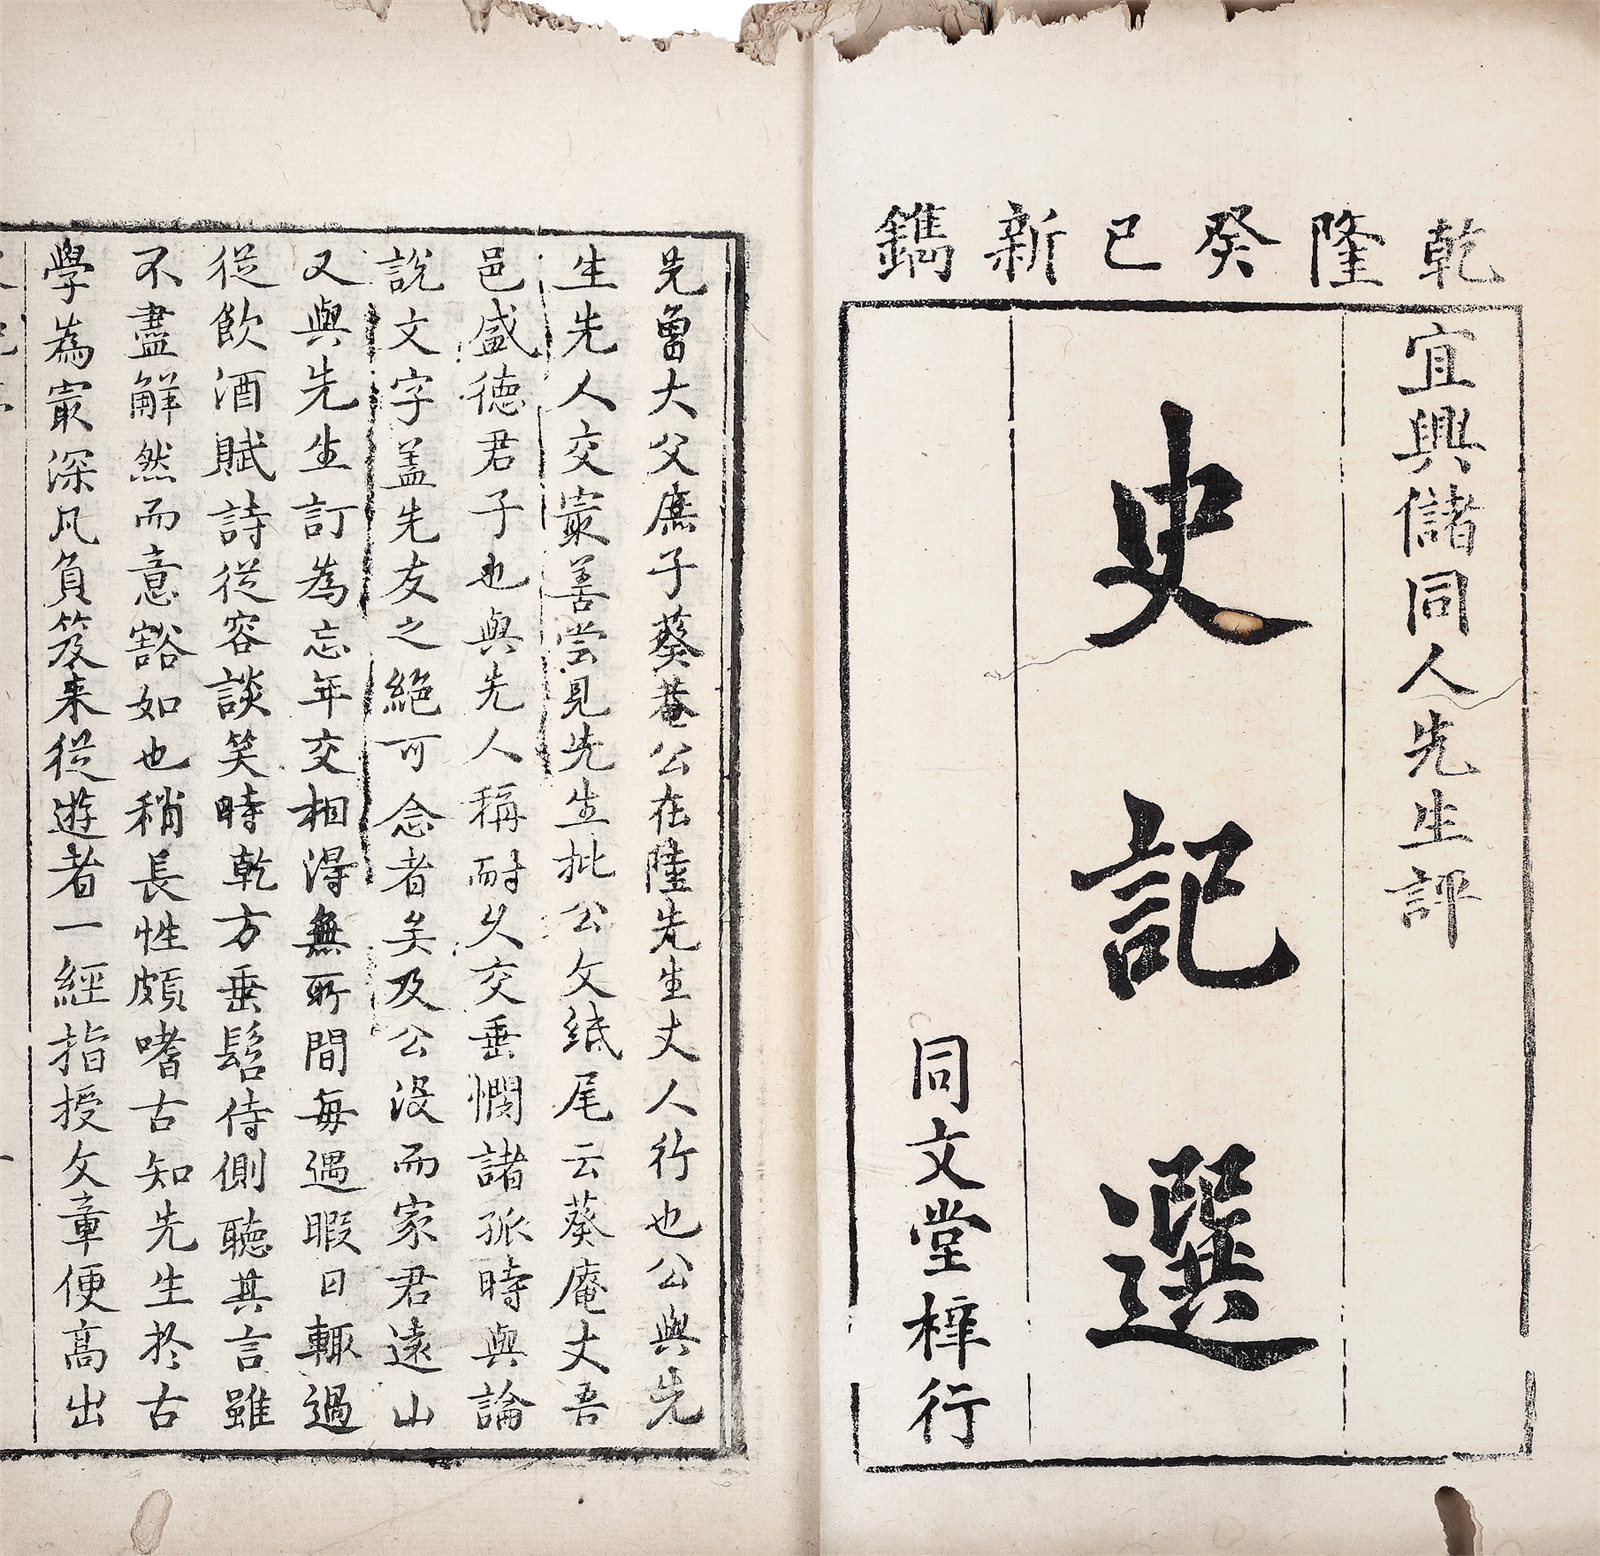 乾隆癸巳新鐫
宜興儲同人先生評
史記選
同文堂梓行
先曾大父庶子葵菴公在陸先生丈人行也公與先
生先人交㝡善嘗見先生批公文紙尾云葵庵丈吾
邑盛德君子也與先人稱耐久交垂憫諸孤時與論
說文字盖先友之絕可念者矣及公沒而家君遠山
又與先生訂為忘年交相得無所間每遇暇日輒過
從飲酒賦詩從容談笑時乾方垂髫侍側聽其言雖
不盡解然而意豁如也稍長性頗嗜古知先生於古
學為㝡深凡負笈来從遊者一經指授文章便高出